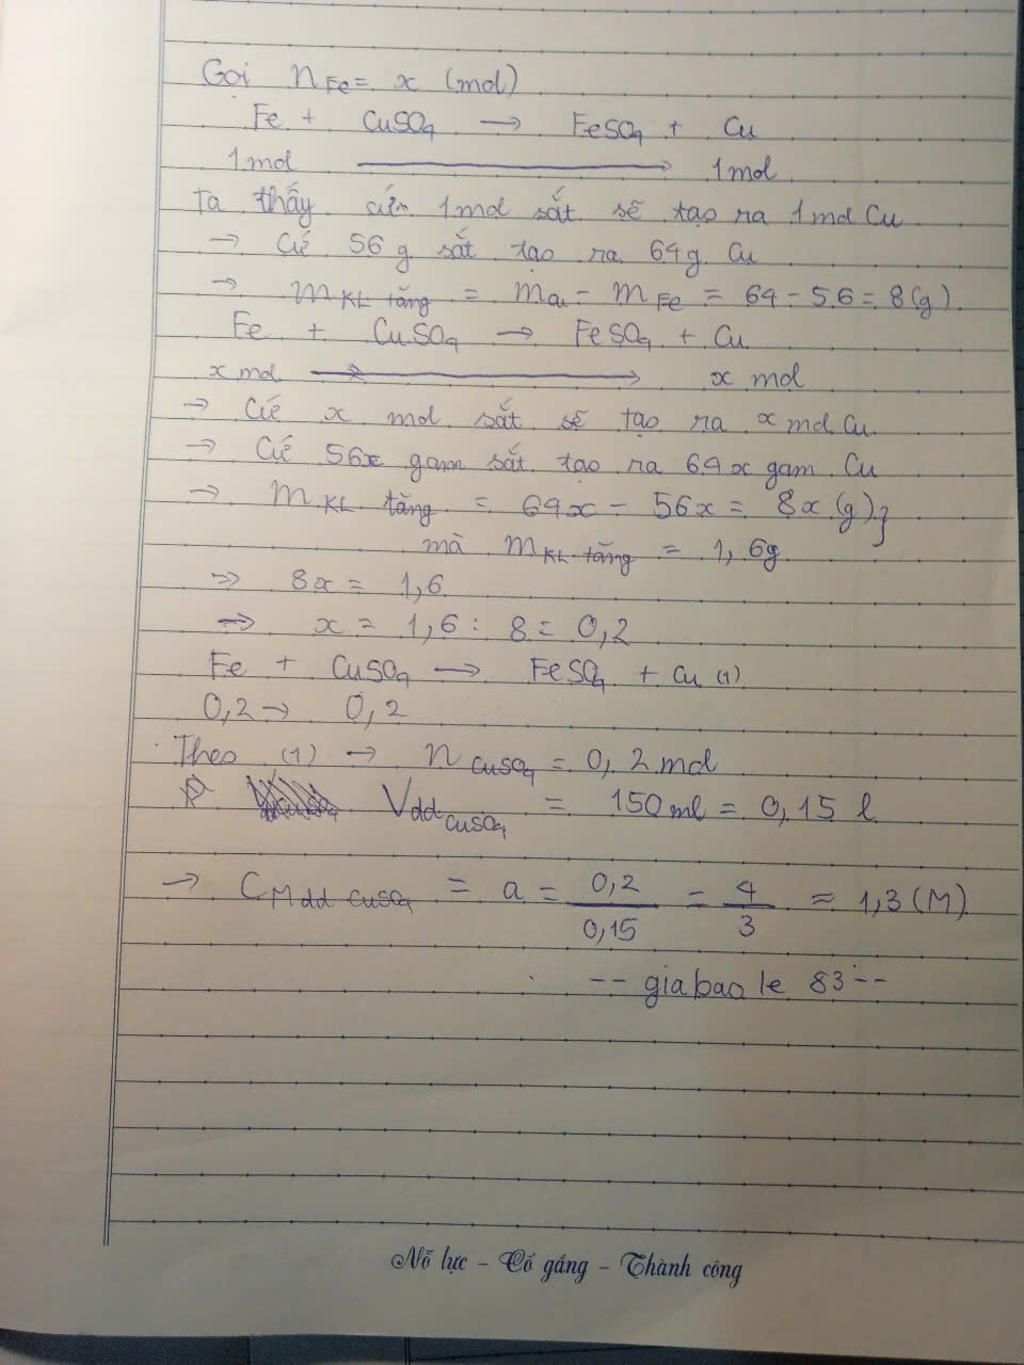 Gọi nFe = x (mol)
Fe + CuSO4 → FeSO4 + Cu
1mol → 1mol
Ta thấy cứ 1mol sắt sẽ tạo ra 1mol Cu
→ Cứ 56g sắt tạo ra 64g Cu
→ mKL tăng = mCu - mFe = 64 - 56 = 8(g)
Fe + CuSO4 → FeSO4 + Cu
x mol → x mol
→ Cứ x mol sắt sẽ tạo ra x mol Cu
→ Cứ 56x gam sắt tạo ra 64x gam Cu
→ mKL tăng = 64x - 56x = 8x (g)}
mà mKL tăng = 1,6g
=> 8x = 1,6
=> x = 1,6 : 8 = 0,2
Fe + CuSO4 → FeSO4 + Cu (1)
0,2 → 0,2
Theo (1) → nCuSO4 = 0,2 mol
Vdd CuSO4 = 150ml = 0,15 l
→ CM dd CuSO4 = a = 0,2/0,15 = 4/3 ≈ 1,3 (M)
-- giabaole 83 --
Nỗ lực - Cố gắng - Thành công